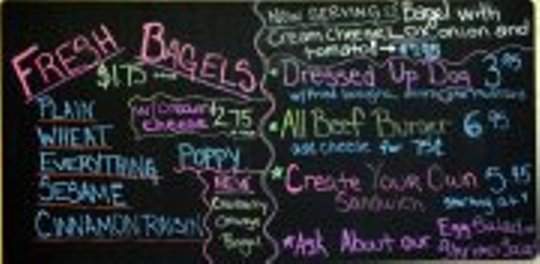 FRESH BAGELS
$1.75
PLAIN
WHEAT
EVERYTHING
SESAME
CINNAMON RAISIN
w/cream cheese 2.75
POPPY
NEW
Cranberry
Orange
Bagel
NOW SERVING Bagel with
Cream cheese, onion and
tomato!
Dressed Up Dog 3.95
All Beef Burger 6.95
add cheese for 75¢
Create Your Own 5.45
Sandwich
Ask About our Egg Salad